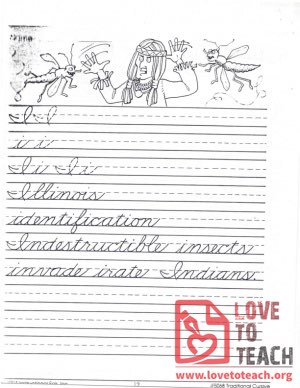 I I
i i
Ii Ii
Illinois
identification
Indestructible insects
invade irate Indians.
LOVE
TO
TEACH
www.lovetoteach.org
19
Traditional Cursive